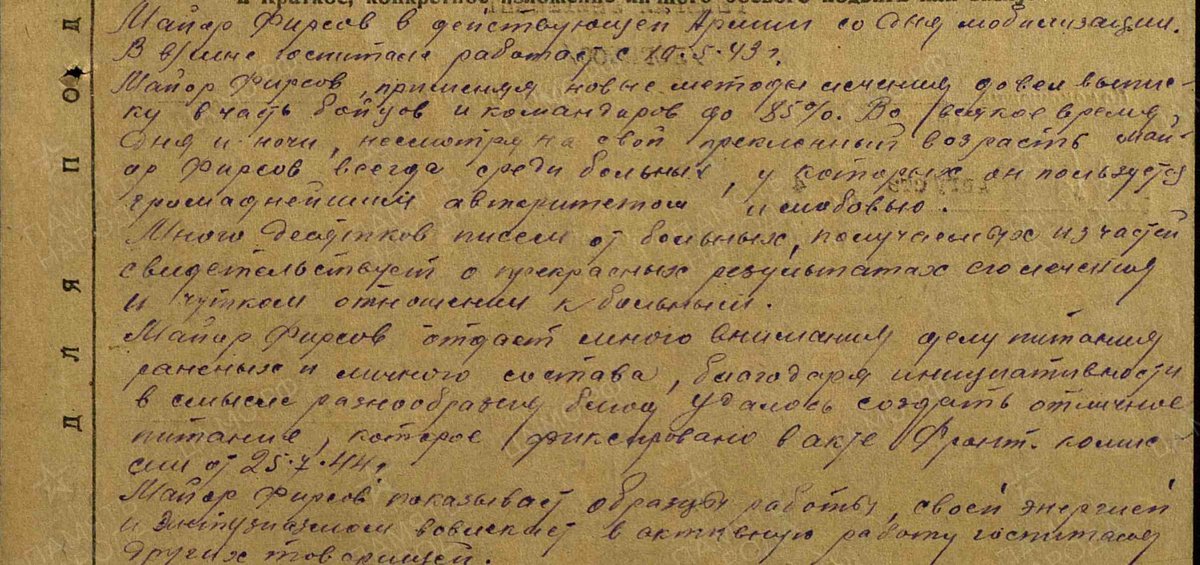 и краткое, конкретное изложение личного боевого подвига или
Майор Фирсов в действующей Армии со дня мобилизации.
В госпитале работает с 19.5.43 г.
Майор Фирсов, применяя новые методы лечения довел выпис-
ку в часть бойцов и командиров до 85%. Во всякое время
дня и ночи, несмотря на свой преклонный возрасть май-
ор Фирсов всегда среди больных, у которых он пользуется
громаднейшим авторитетом и любовью.
Много десятков писем от больных, получаемых из частей
свидетельствует о прекрасных результатах его лечения
и чутком отношении к больным.
Майор Фирсов отдает много внимания делу питания
раненых и личного состава, благодаря инициативности
в смысле разнообразия блюд удалось создать отличное
питание, которое фиксировано в акте Фронт. комис
сии от 25.7.44 г.
Майор Фирсов показывает образцы работы, своей энергией
и энтузиазмом вовлекает в активную работу госпиталя
других товарищей.
Д Л Я П О Д